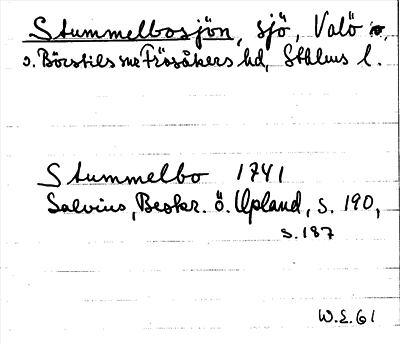 Stummelbosjön, sjö, Valö
o. Börstils snr Frösåkers hd, Sthlms l.
Stummelbo 1741
Salvius, Beskr. ö. Upland, s. 190,
s. 187
W.E. 61